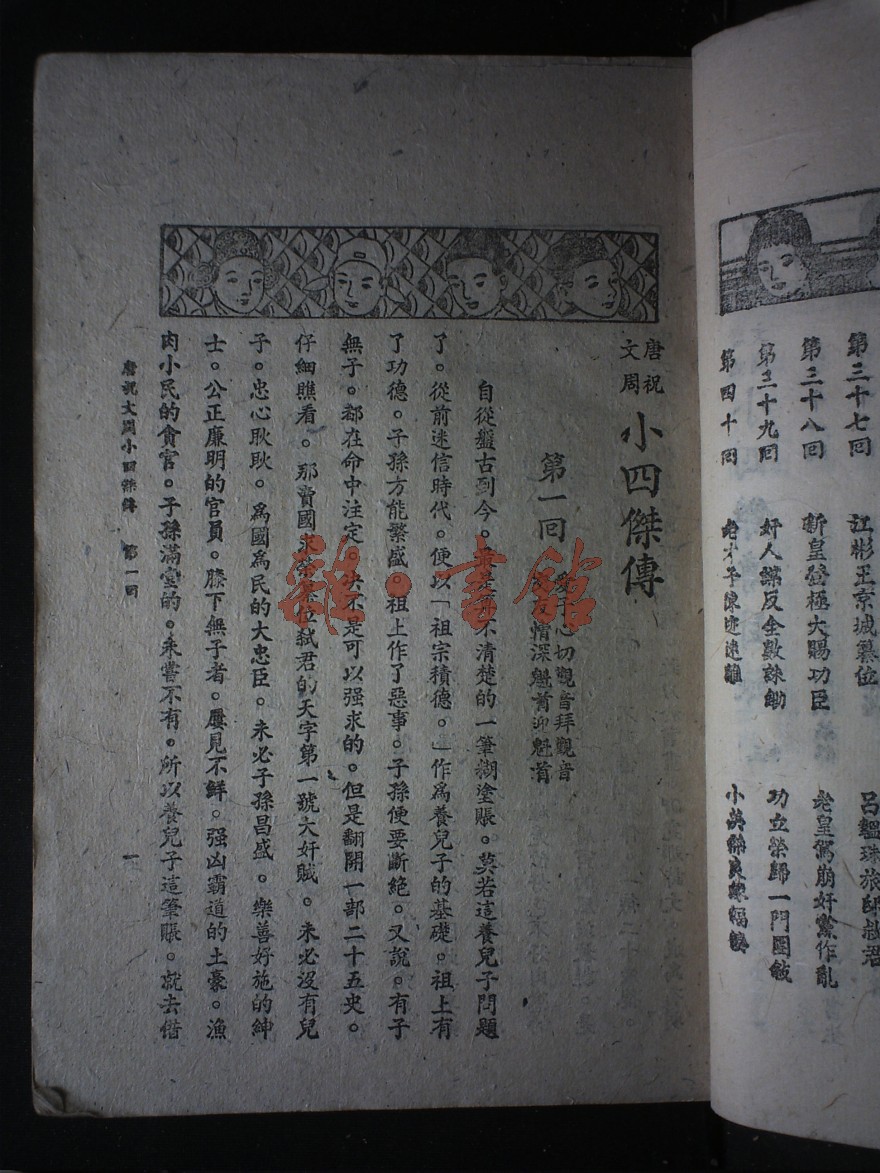 第三十七回　江彬王京城篡位
第三十八回　新皇登極大賜功臣　老皇駕崩奸黨作亂
第三十九回　奸人謀反全數誅鋤　功立榮歸一門團敍
第四十回　老才子陳迹遠離
唐祝文周　小四傑傳
第一回　子心切觀音拜觀音
友情深魁首迎魁首
自從盤古到今。最是算不清楚的一筆糊塗賬。莫若這養兒子問題
了。從前迷信時代。便以「祖宗積德。」作爲養兒子的基礎。祖上有
了功德。子孫方能繁盛。祖上作了惡事。子孫便要斷絕。又說。有子
無子。都在命中注定。决不是可以强求的。但是翻開一部二十五史。
仔細瞧看。那賣國求榮位弑君的天字第一號大奸賊。未必沒有兒
子。忠心耿耿。爲國爲民的大忠臣。未必子孫昌盛。樂善好施的紳
士。公正廉明的官員。膝下無子者。屢見不鮮。强凶霸道的土豪。漁
肉小民的貪官。子孫滿堂的。未嘗不有。所以養兒子這筆賬。就去借
唐祝文周小四傑傳　第一回　一
雜·書館